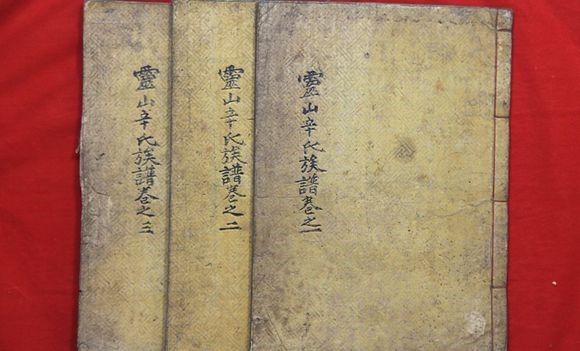 靈山辛氏族譜卷之一
靈山辛氏族譜卷之二
靈山辛氏族譜卷之三